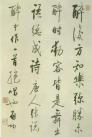 醉後方知樂彌勝未
醉時動容皆是舞出
語總成詩唐人張說
醉中作一首啟功